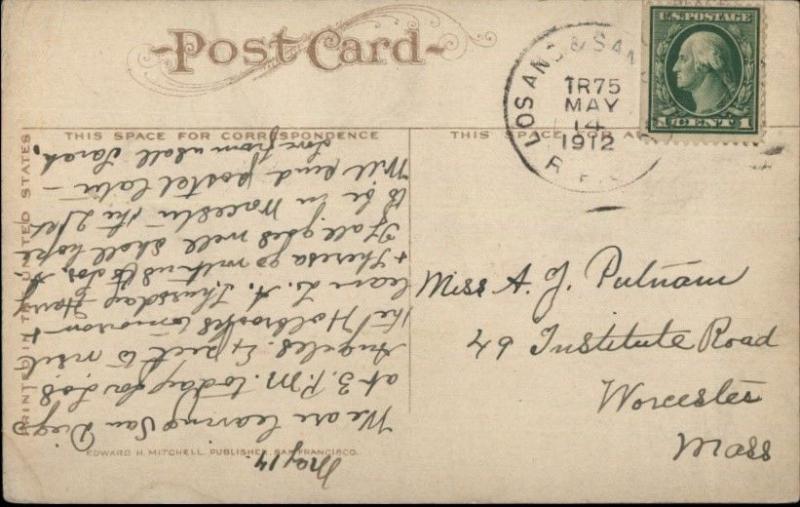 Post Card
U.S. POSTAGE
1 CENT 1
LOS ANG & SAN
TR75
MAY
14
1912
R.P.O.
THIS SPACE FOR CORRESPONDENCE
THIS SPACE FOR
PRINTED IN THE UNITED STATES
May 14.
We are leaving San Diego
at 3. P.M. today for Los
Angeles. Expect to visit
the Holbrooks tomorrow +
leave L. A. Thursday. Harry
+ Theresa go with us to
If all goes well shall hope
to be in Worcester the 21st.
Will send postal later –
Love from us all Sarah.
Miss A. J. Putnam
49 Institute Road
Worcester
Mass
EDWARD H. MITCHELL, PUBLISHER, SAN FRANCISCO.